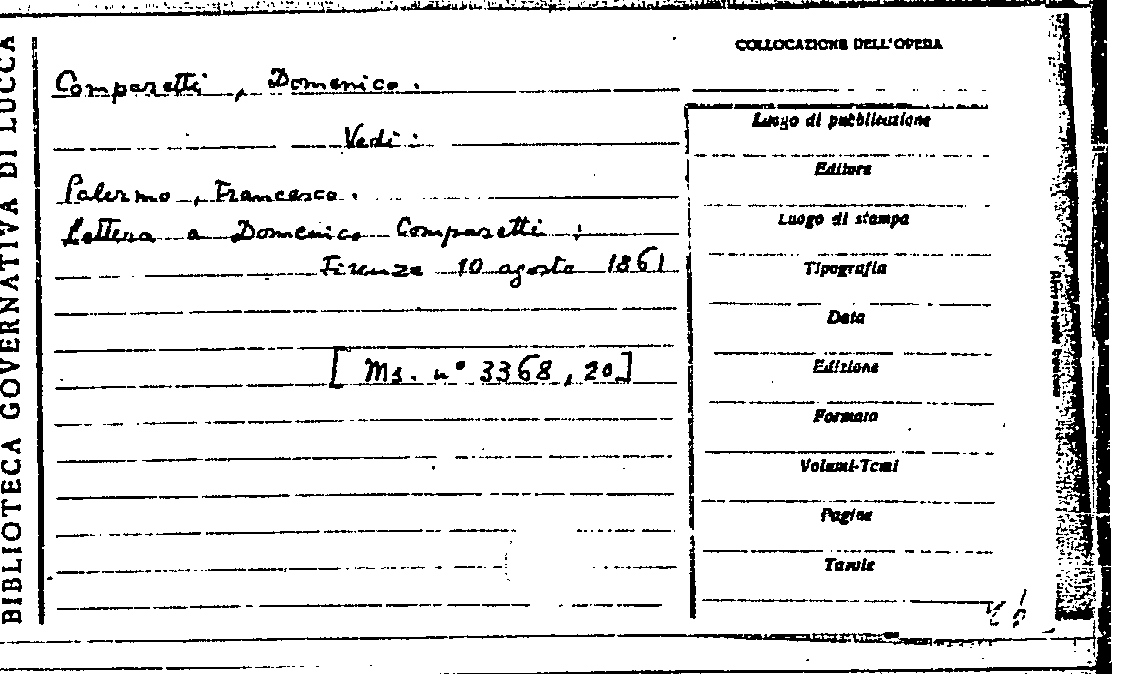 BIBLIOTECA GOVERNATIVA DI LUCCA
COLLOCAZIONE DELL'OPERA
Comparetti, Domenico.
Vedi:
Palermo, Francesco.
Lettera a Domenico Comparetti;
Firenze 10 agosto 1861
[Ms. n° 3368, 20]
Luogo di pubblicazione
Editore
Luogo di stampa
Tipografia
Data
Edizione
Formato
Volumi-Tomi
Pagine
Tavole